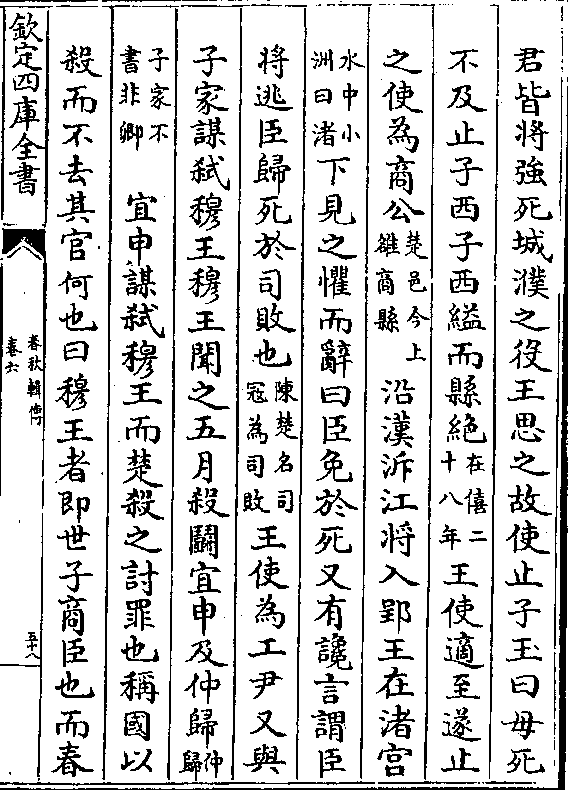 君皆將強死城濮之役王思之故使止子玉曰毋死
不及止子西子西縊而縣絕在僖二十八年王使適至遂止
之使為商公楚邑今上雒商縣沿漢泝江將入郢王在渚宮
水中小洲曰渚下見之懼而辭曰臣免於死又有讒言謂臣
將逃臣歸死於司敗也陳楚名司冦為司敗王使為工尹又與
子家謀弑穆王穆王聞之五月殺鬭宜申及仲歸仲歸
子家不書非卿 宜申謀弑穆王而楚殺之討罪也稱國以
殺而不去其官何也曰穆王者即世子商臣也而春
欽定四庫全書
春秋輯傳
卷六
五十八